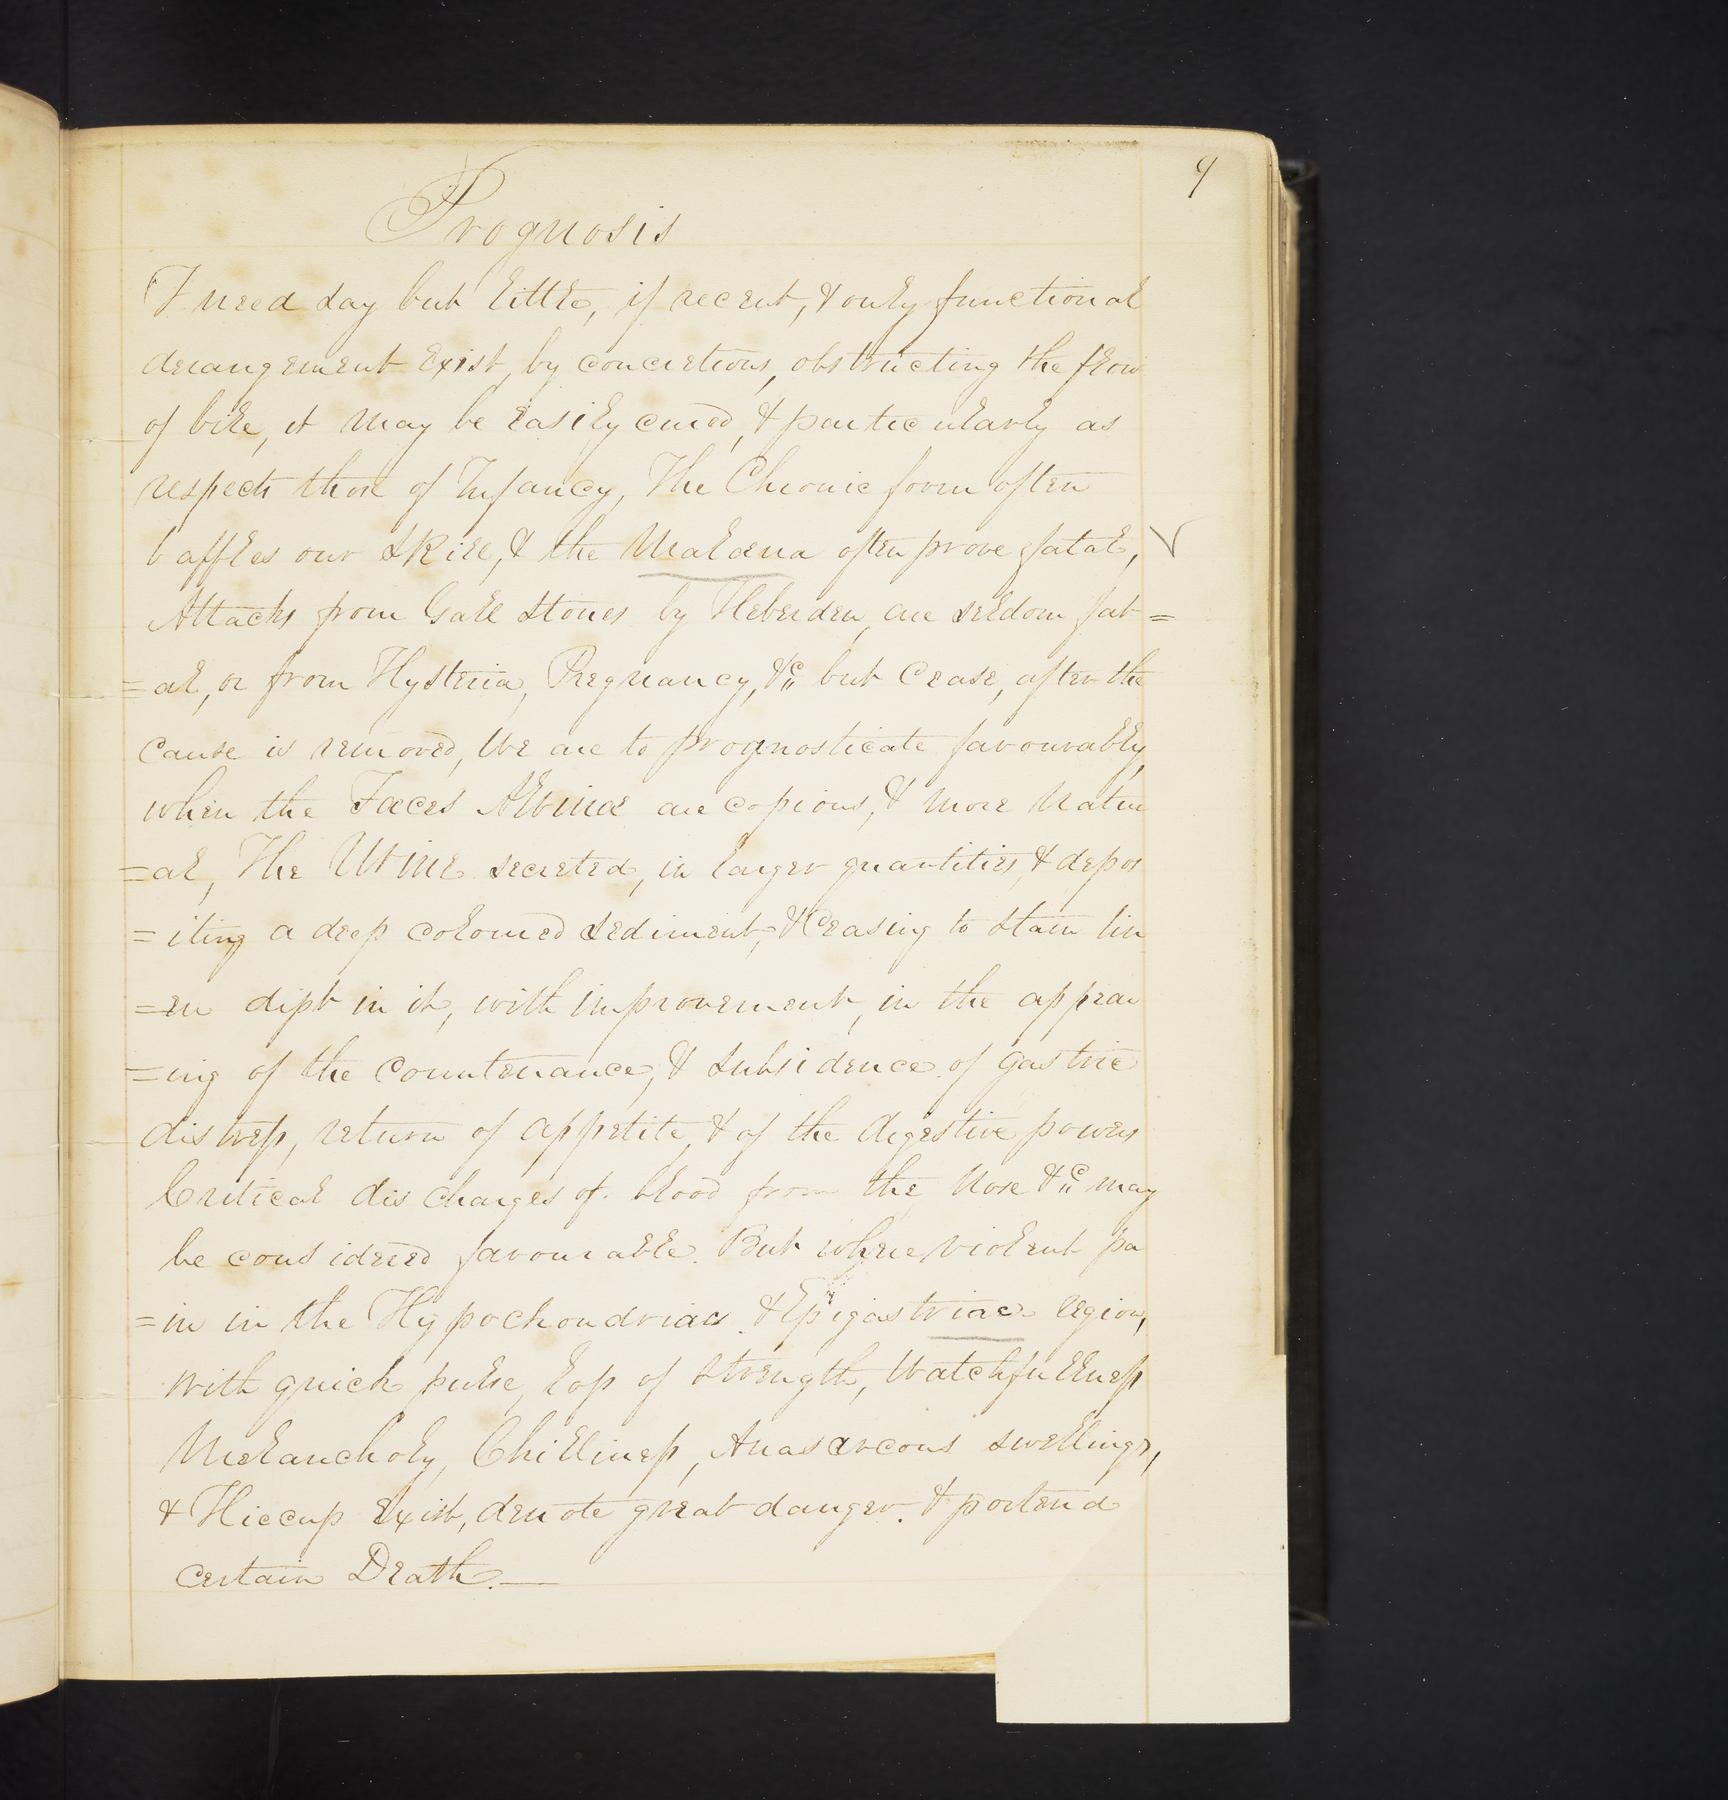 9
Prognosis
I need say but little, if recent, & only functional
derangement exist, by concretions, obstructing the flow
of bile, it may be easily cured, & particularly as
respects those of Infancy, The Chronic form often
baffles our skill, & the Malæna often prove fatal,
Attacks from Gall stones by Heberden, are seldom fat=
=al, or from Hysteria, Pregnancy, &c but Cease, after the
Cause is removed, We are to prognosticate favourably,
when the Fæces Alvinæ are copious, & more natur
=al, The Urine secreted, in larger quantities, & depos
=iting a deep coloured sediment, & Ceasing to stain lin
=en dipt in it, with improvement, in the appear
=ing of the Countenance, & subsidence of gastric
distress, return of appetite, & of the digestive powers
Critical discharges of blood from the Nose &c may
be considered favourable. But where violent pa
=in in the Hypochondriac & Epigastriac region,
with quick pulse, loss of strength, Watchfullness
Melancholy, Chilliness, Anasarcous swellings,
& Hiccup exist, denote great danger. & portend
certain Death.—